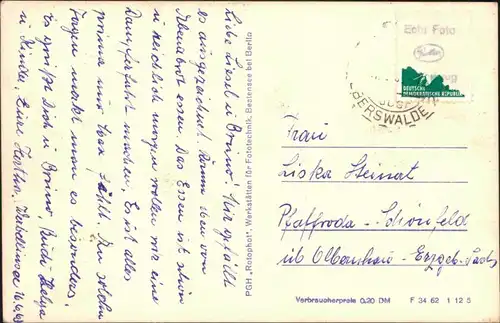 Liebe Liesel u. Bruno! Hier gefällt
es ausgezeichnet. Kamen eben vom
Abendbrot essen. Das Essen ist schön
u. reichlich morgen wollen wir eine
Dampferfahrt machen. Es ist alles
prima nur Spax fehlt. In solchen
Tagen merkt man es besonders.
Es grüßt Dich u. Bruno, Rudi, Helga
u. Kinder, Eure Hertha.
PGH „Rotophot", Werkstätten für Fototechnik, Bestensee bei Berlin
Echt Foto
DEUTSCHE
DEMOKRATISCHE REPUBLIK
EBERSWALDE
Frau
Liska Steinert
Pfaffroda - Schönfeld
üb Olbernhau - Erzgeb. Sachs
Verbraucherpreis 0,20 DM F 34 62 1 12 5